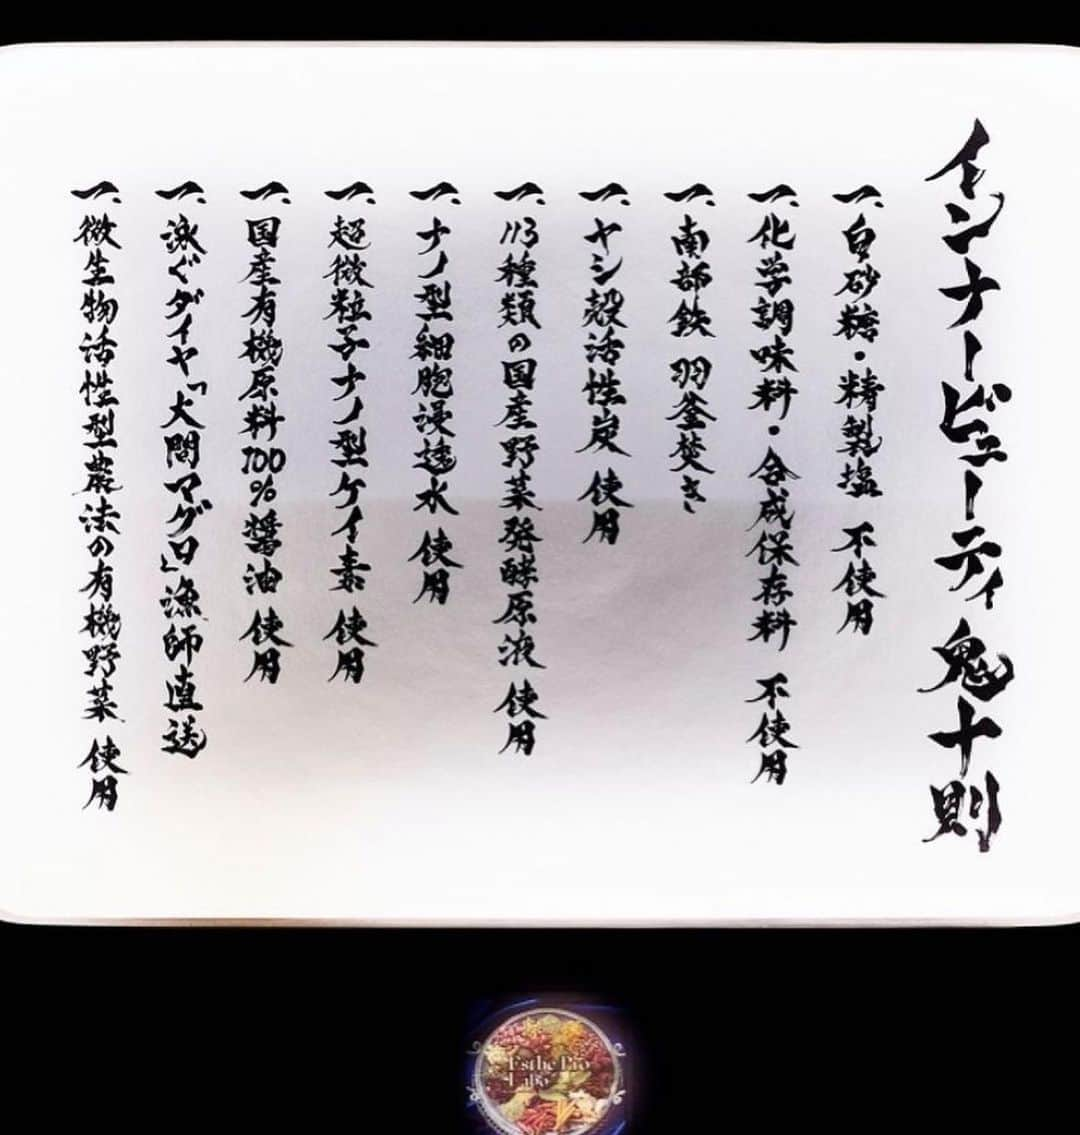 インナービューティ 鬼十則
一、白砂糖・精製塩 不使用
一、化学調味料・合成保存料 不使用
一、南部鉄 羽釜焚き
一、ヤシ殻活性炭 使用
一、113種類の国産野菜発酵原液 使用
一、ナノ型細胞浸透水 使用
一、超微粒子ナノ型ケイ素 使用
一、国産有機原料100%醤油 使用
一、泳ぐダイヤ「大間マグロ」漁師直送
一、微生物活性型農法の有機野菜 使用
Esthe Pro
Labo